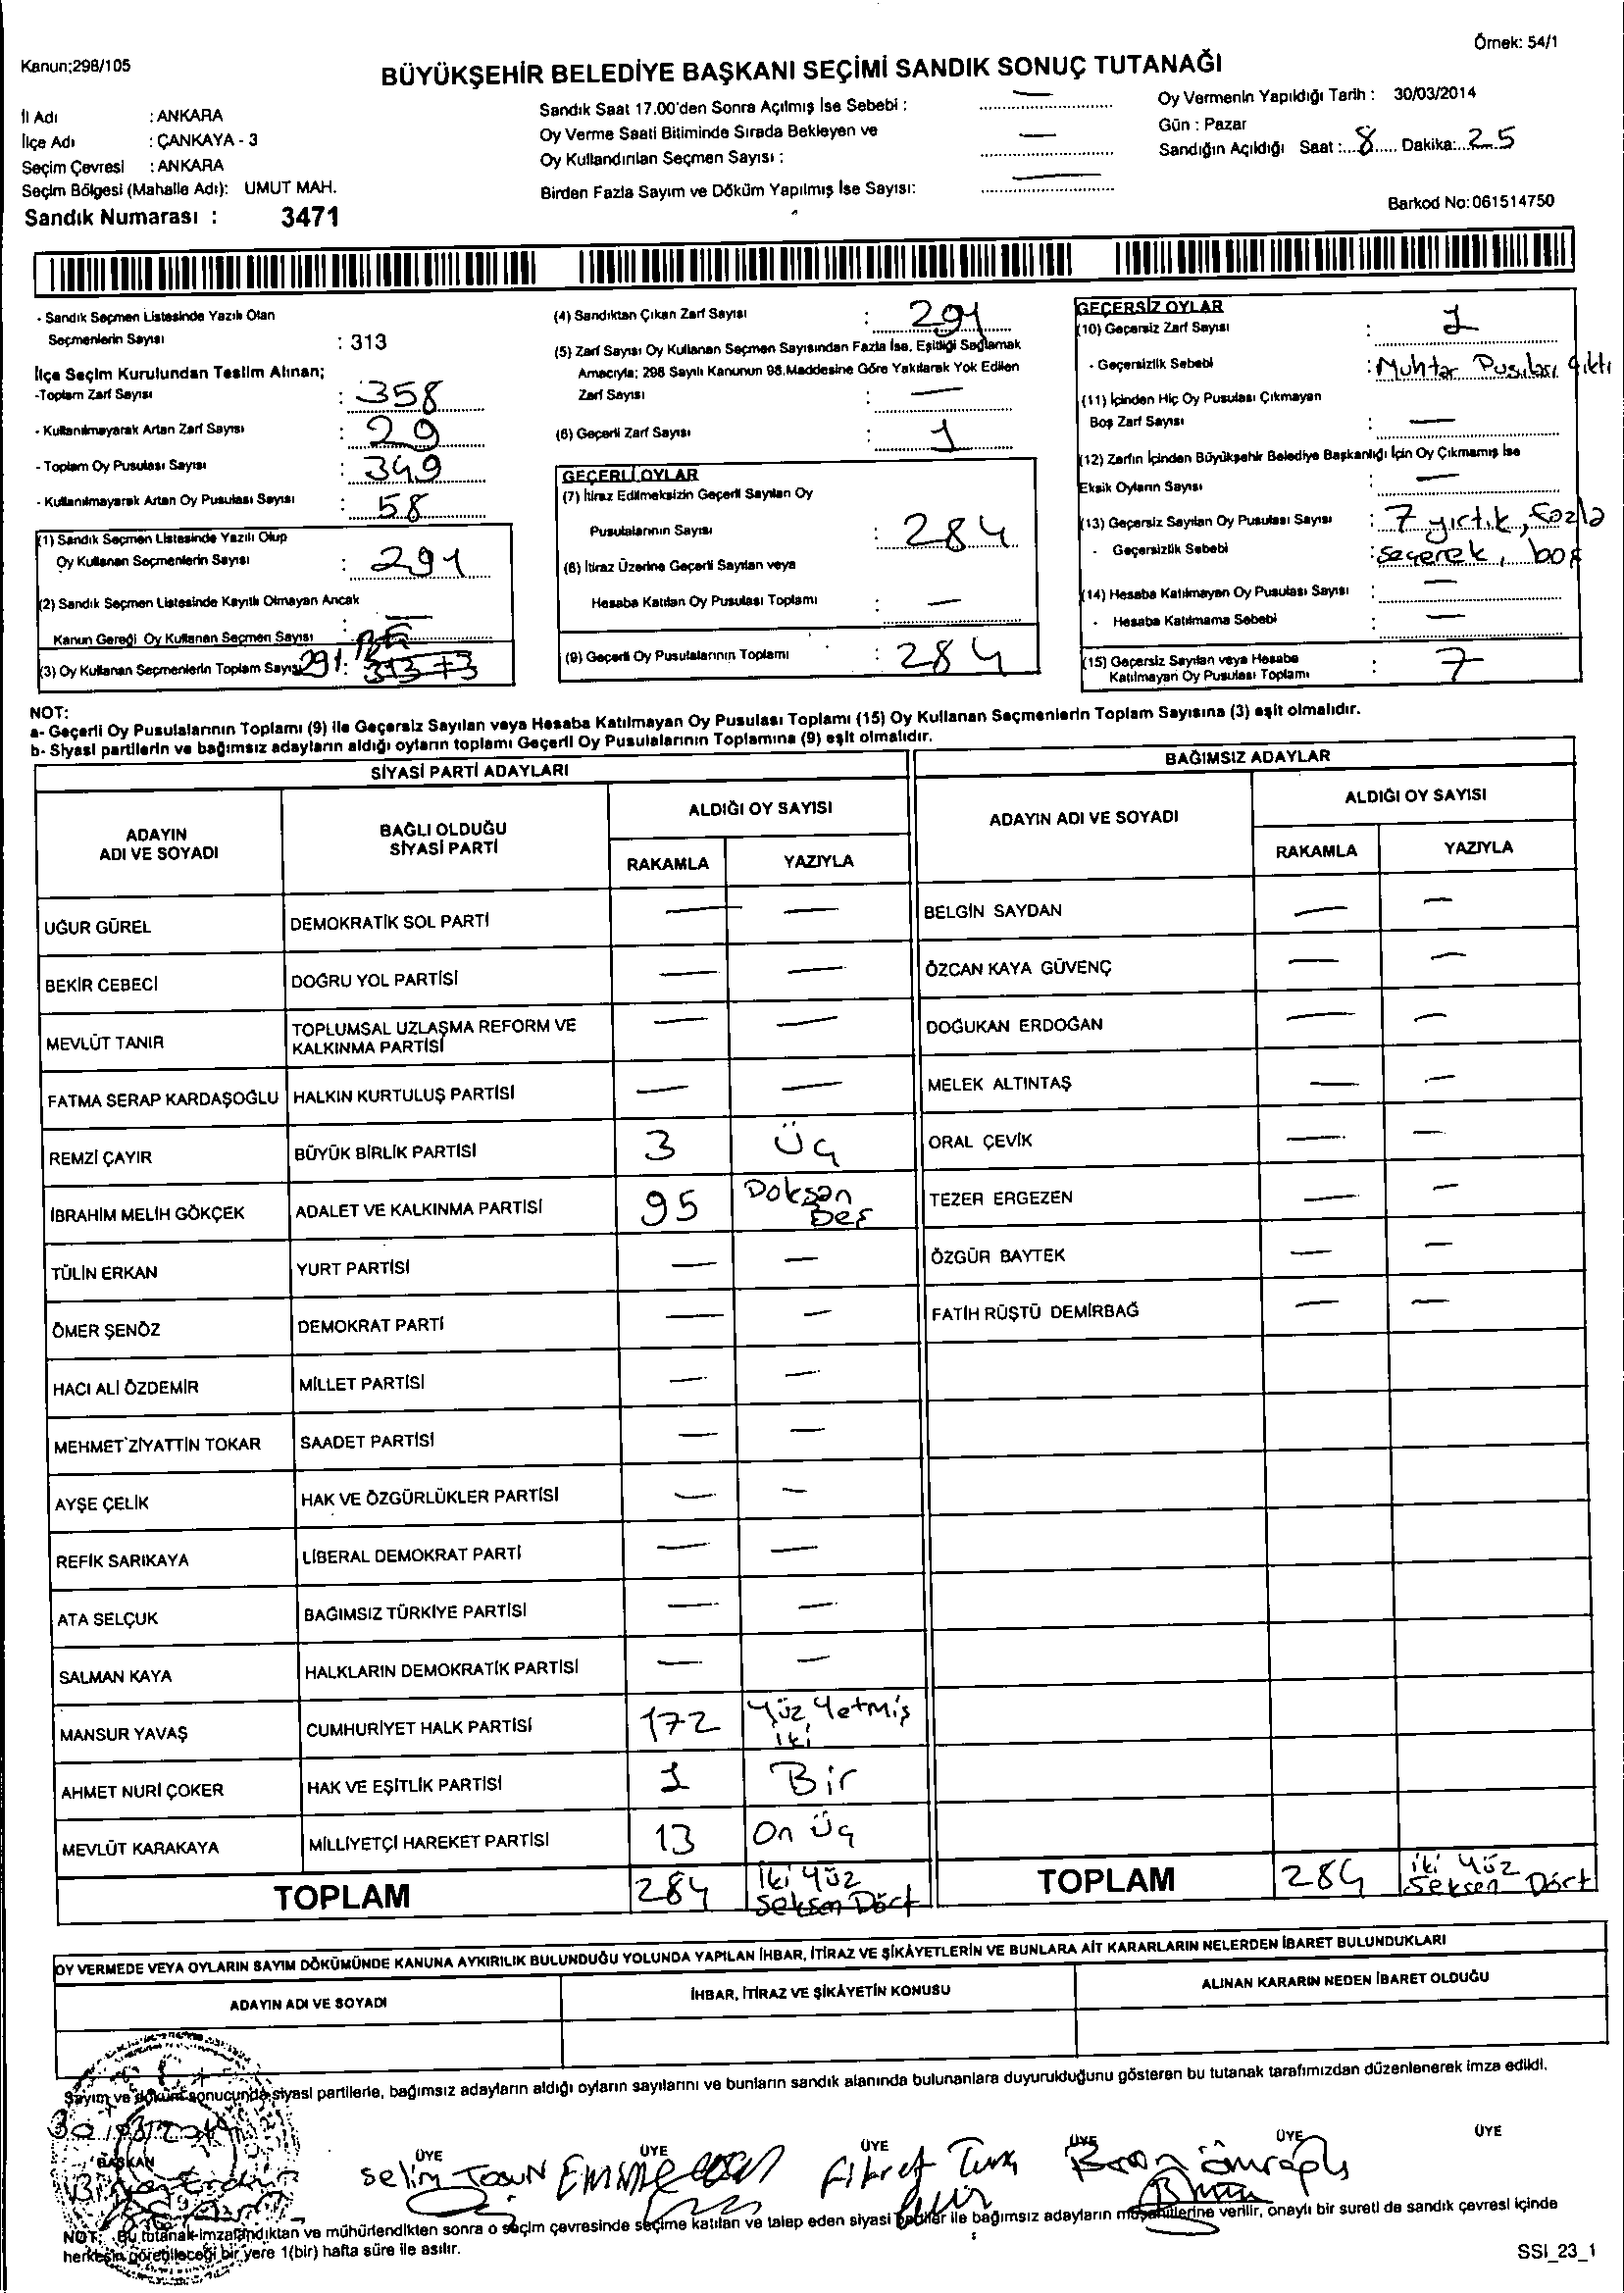 Örnek: 54/1
Kanun;298/105
BÜYÜKŞEHİR BELEDİYE BAŞKANI SEÇİMİ SANDIK SONUÇ TUTANAĞI
İl Adı : ANKARA
İlçe Adı : ÇANKAYA - 3
Seçim Çevresi : ANKARA
Seçim Bölgesi (Mahalle Adı): UMUT MAH.
Sandık Numarası : 3471
Sandık Saat 17.00'den Sonra Açılmış İse Sebebi : —
Oy Verme Saati Bitiminde Sırada Bekleyen ve
Oy Kullandırılan Seçmen Sayısı : —
Birden Fazla Sayım ve Döküm Yapılmış İse Sayısı: —
Oy Vermenin Yapıldığı Tarih : 30/03/2014
Gün : Pazar
Sandığın Açıldığı Saat :...8..... Dakika:..25
Barkod No:061514750
- Sandık Seçmen Listesinde Yazılı Olan
Seçmenlerin Sayısı : 313
İlçe Seçim Kurulundan Teslim Alınan;
-Toplam Zarf Sayısı : 358
- Kullanılmayarak Artan Zarf Sayısı : 29
- Toplam Oy Pusulası Sayısı : 349
- Kullanılmayarak Artan Oy Pusulası Sayısı : 58
(1) Sandık Seçmen Listesinde Yazılı Olup
Oy Kullanan Seçmenlerin Sayısı : 291
(2) Sandık Seçmen Listesinde Kayıtlı Olmayan Ancak
Kanun Gereği Oy Kullanan Seçmen Sayısı : —
(3) Oy Kullanan Seçmenlerin Toplam Sayısı 291:
(4) Sandıktan Çıkan Zarf Sayısı : 291
(5) Zarf Sayısı Oy Kullanan Seçmen Sayısından Fazla İse, Eşitliği Sağlamak
Amacıyla; 298 Sayılı Kanunun 98.Maddesine Göre Yakılarak Yok Edilen
Zarf Sayısı : —
(6) Geçerli Zarf Sayısı : 1
GEÇERLİ OYLAR
(7) İtiraz Edilmeksizin Geçerli Sayılan Oy
Pusulalarının Sayısı : 284
(8) İtiraz Üzerine Geçerli Sayılan veya
Hesaba Katılan Oy Pusulası Toplamı : —
(9) Geçerli Oy Pusulalarının Toplamı : 284
GEÇERSİZ OYLAR
(10) Geçersiz Zarf Sayısı : 1
- Geçersizlik Sebebi : Muhtar Pusulası çıktı
(11) İçinden Hiç Oy Pusulası Çıkmayan
Boş Zarf Sayısı : —
(12) Zarfın İçinden Büyükşehir Belediye Başkanlığı İçin Oy Çıkmamış İse
Eksik Oyların Sayısı : —
(13) Geçersiz Sayılan Oy Pusulası Sayısı : 7 yırtık, fazla
- Geçersizlik Sebebi : seçerek, boş
(14) Hesaba Katılmayan Oy Pusulası Sayısı : —
- Hesaba Katılmama Sebebi : —
(15) Geçersiz Sayılan veya Hesaba
Katılmayan Oy Pusulası Toplamı : 7
NOT:
a- Geçerli Oy Pusulalarının Toplamı (9) ile Geçersiz Sayılan veya Hesaba Katılmayan Oy Pusulası Toplamı (15) Oy Kullanan Seçmenlerin Toplam Sayısına (3) eşit olmalıdır.
b- Siyasi partilerin ve bağımsız adayların aldığı oyların toplamı Geçerli Oy Pusulalarının Toplamına (9) eşit olmalıdır.
SİYASİ PARTİ ADAYLARI
ADAYIN ADI VE SOYADI | BAĞLI OLDUĞU SİYASİ PARTİ | ALDIĞI OY SAYISI
RAKAMLA | YAZIYLA
UĞUR GÜREL | DEMOKRATİK SOL PARTİ | — | —
BEKİR CEBECİ | DOĞRU YOL PARTİSİ | — | —
MEVLÜT TANIR | TOPLUMSAL UZLAŞMA REFORM VE KALKINMA PARTİSİ | — | —
FATMA SERAP KARDAŞOĞLU | HALKIN KURTULUŞ PARTİSİ | — | —
REMZİ ÇAYIR | BÜYÜK BİRLİK PARTİSİ | 3 | Üç
İBRAHİM MELİH GÖKÇEK | ADALET VE KALKINMA PARTİSİ | 95 | Doksan Beş
TÜLİN ERKAN | YURT PARTİSİ | — | —
ÖMER ŞENÖZ | DEMOKRAT PARTİ | — | —
HACI ALİ ÖZDEMİR | MİLLET PARTİSİ | — | —
MEHMET ZİYATTİN TOKAR | SAADET PARTİSİ | — | —
AYŞE ÇELİK | HAK VE ÖZGÜRLÜKLER PARTİSİ | — | —
REFİK SARIKAYA | LİBERAL DEMOKRAT PARTİ | — | —
ATA SELÇUK | BAĞIMSIZ TÜRKİYE PARTİSİ | — | —
SALMAN KAYA | HALKLARIN DEMOKRATİK PARTİSİ | — | —
MANSUR YAVAŞ | CUMHURİYET HALK PARTİSİ | 172 | Yüz Yetmiş iki
AHMET NURİ ÇOKER | HAK VE EŞİTLİK PARTİSİ | 1 | Bir
MEVLÜT KARAKAYA | MİLLİYETÇİ HAREKET PARTİSİ | 13 | On üç
TOPLAM | 284 | iki yüz Seksen Dört
BAĞIMSIZ ADAYLAR
ADAYIN ADI VE SOYADI | ALDIĞI OY SAYISI
RAKAMLA | YAZIYLA
BELGİN SAYDAN | — | —
ÖZCAN KAYA GÜVENÇ | — | —
DOĞUKAN ERDOĞAN | — | —
MELEK ALTINTAŞ | — | —
ORAL ÇEVİK | — | —
TEZER ERGEZEN | — | —
ÖZGÜR BAYTEK | — | —
FATİH RÜŞTÜ DEMİRBAĞ | — | —
TOPLAM | 284 | iki yüz Seksen Dört
OY VERMEDE VEYA OYLARIN SAYIM DÖKÜMÜNDE KANUNA AYKIRILIK BULUNDUĞU YOLUNDA YAPILAN İHBAR, İTİRAZ VE ŞİKÂYETLERİN VE BUNLARA AİT KARARLARIN NELERDEN İBARET BULUNDUKLARI
ADAYIN ADI VE SOYADI | İHBAR, İTİRAZ VE ŞİKÂYETİN KONUSU | ALINAN KARARIN NEDEN İBARET OLDUĞU
Sayım ve döküm sonucunda siyasi partilerle, bağımsız adayların aldığı oyların sayılarını ve bunların sandık alanında bulunanlara duyurulduğunu gösteren bu tutanak tarafımızdan düzenlenerek imza edildi.
30/03/2014
BAŞKAN ÜYE ÜYE ÜYE ÜYE ÜYE ÜYE
Selim Fikret
NOT: Bu tutanak imzalandıktan ve mühürlendikten sonra o seçim çevresinde seçime katılan ve talep eden siyasi partiler ile bağımsız adayların müşahitlerine verilir, onaylı bir sureti de sandık çevresi içinde
herkesin görebileceği bir yere 1(bir) hafta süre ile asılır.
SSI_23_1